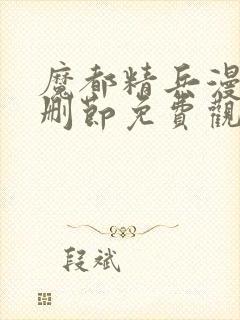 魔都精兵漫
刪節免費觀
段斌